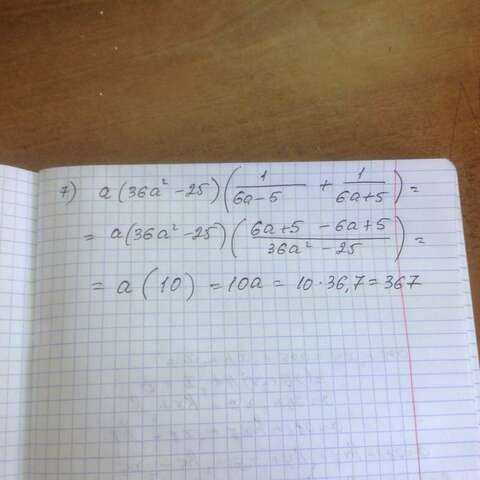 7) a(36a² - 25)(1/(6a-5) + 1/(6a+5)) =
= a(36a² - 25)((6a+5 - 6a+5)/(36a² - 25)) =
= a(10) = 10a = 10·36,7 = 367